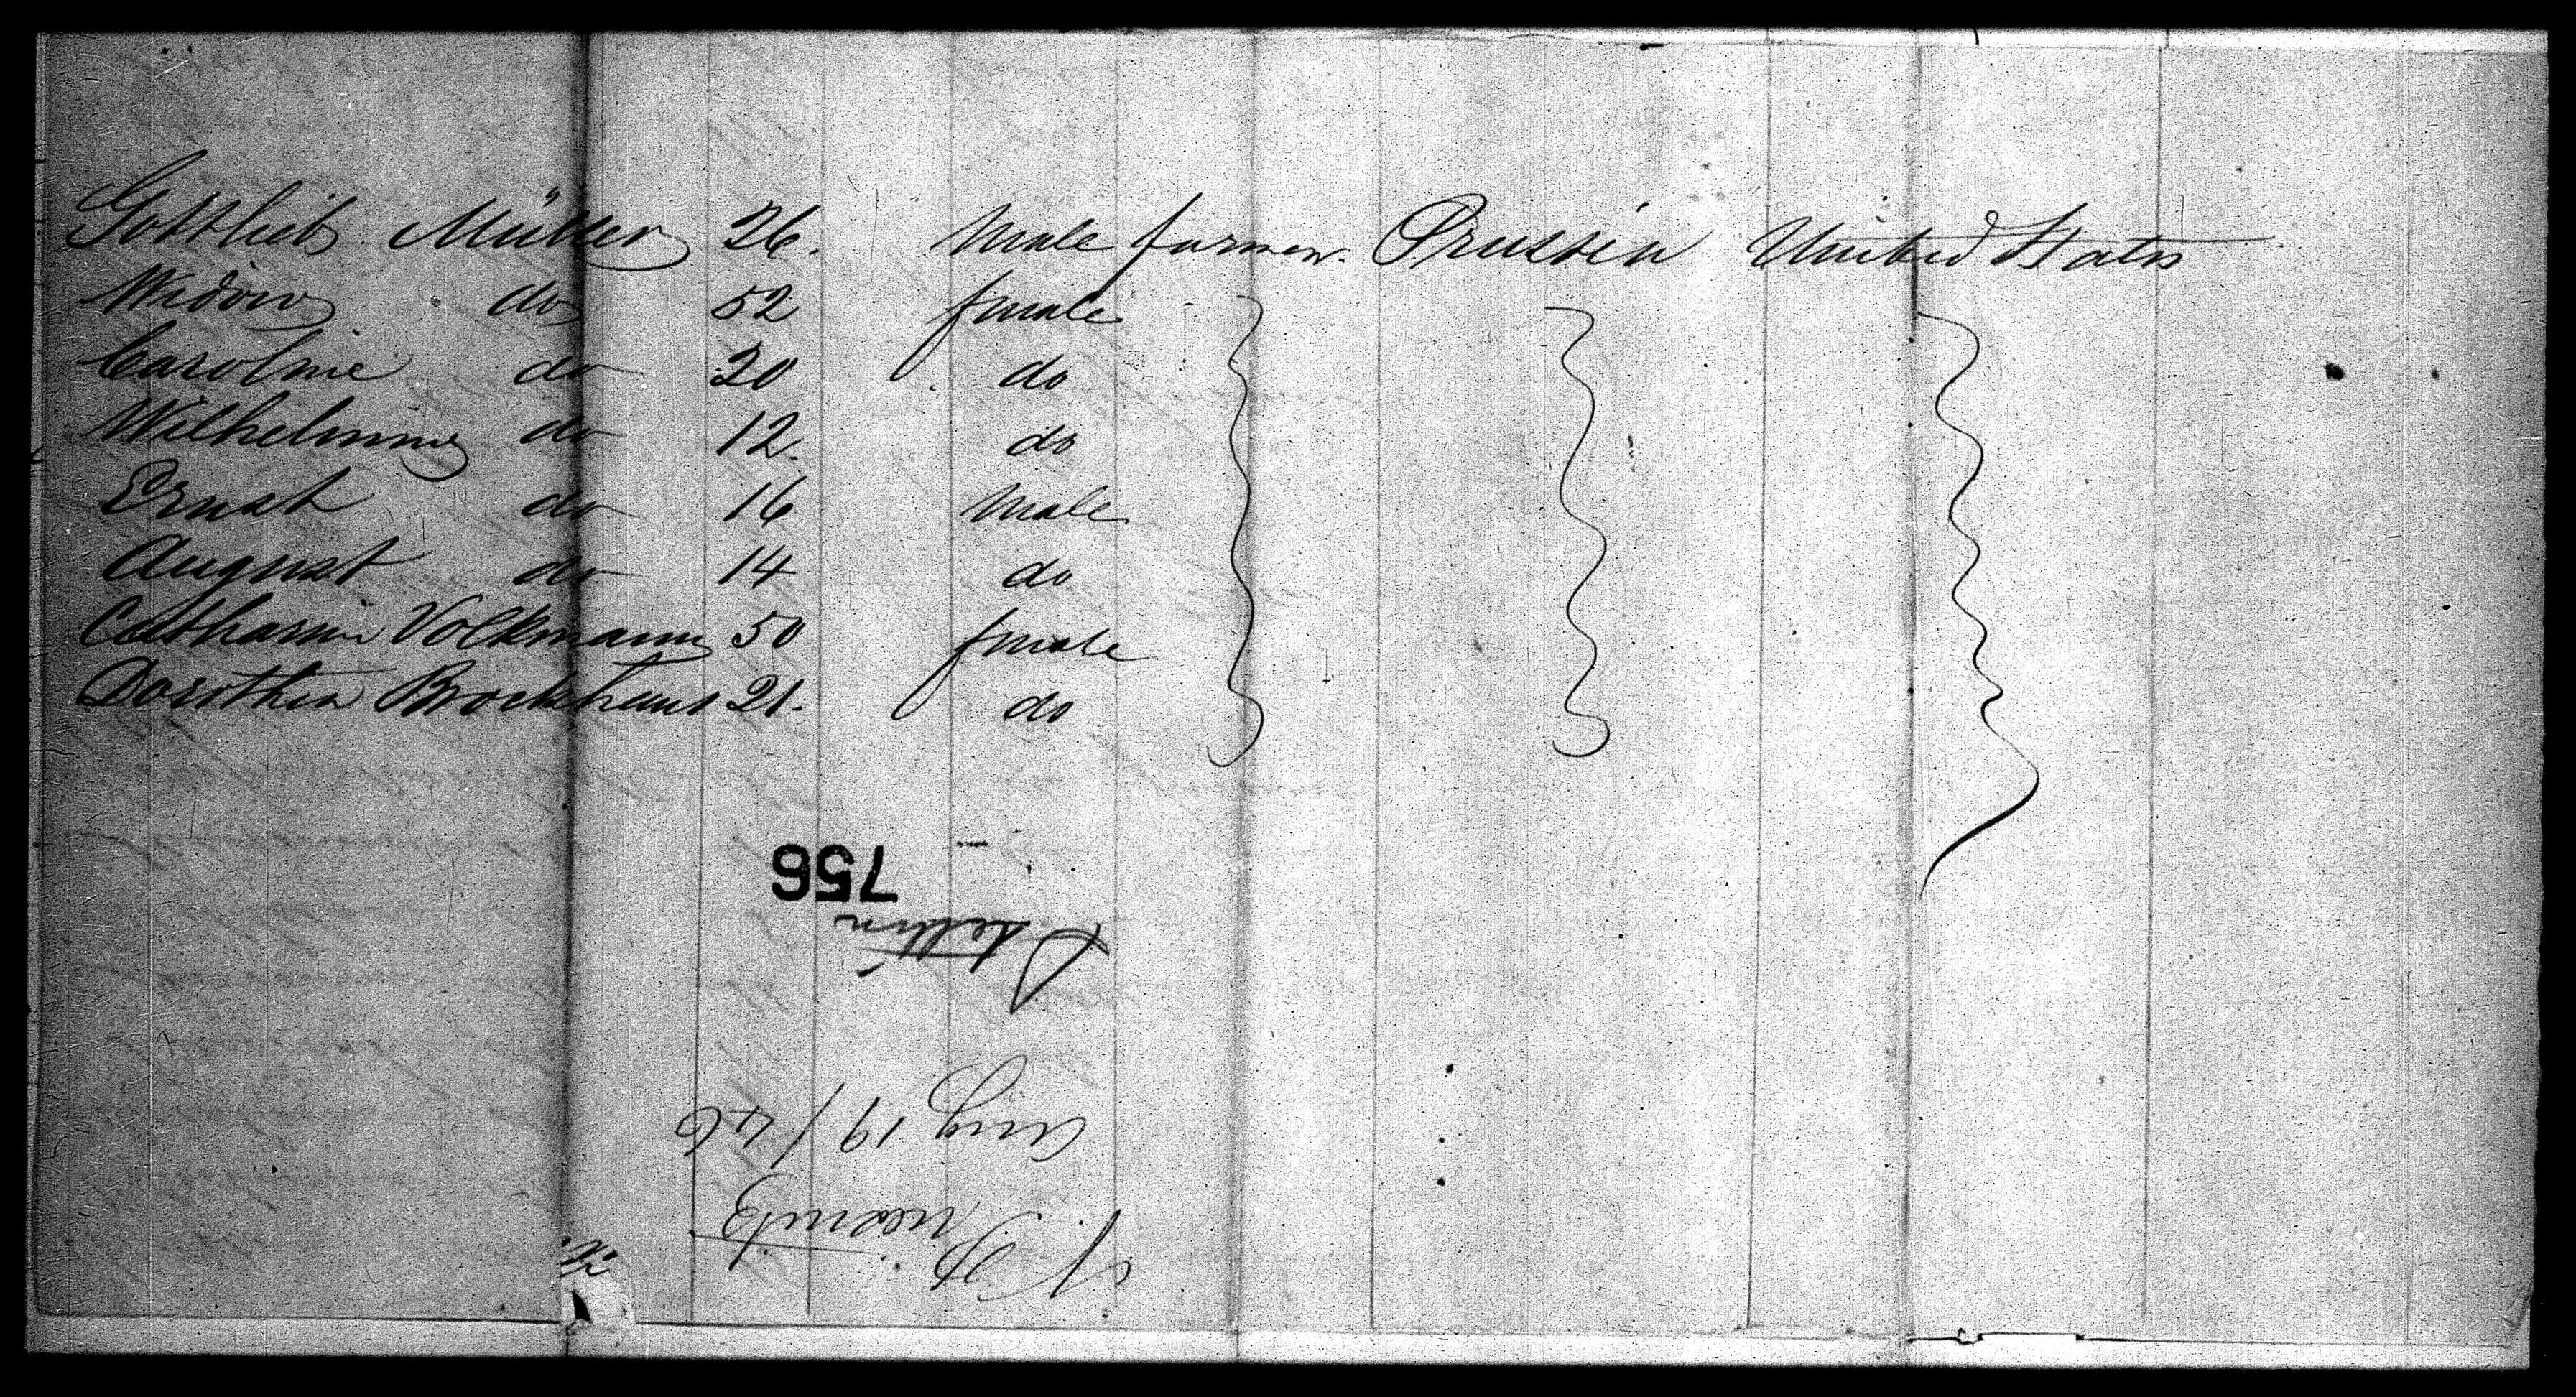 Gottlieb Müller 26. Male farmer. Prussia United States
Widow do 52 female
Caroline do 20 do
Wilhelmine do 12. do
Ernst do 16 Male
August do 14 do
Catharine Volkmann 50 female
Dorothea Brockhaus 21. do
756
Stettin
Aug 19/46